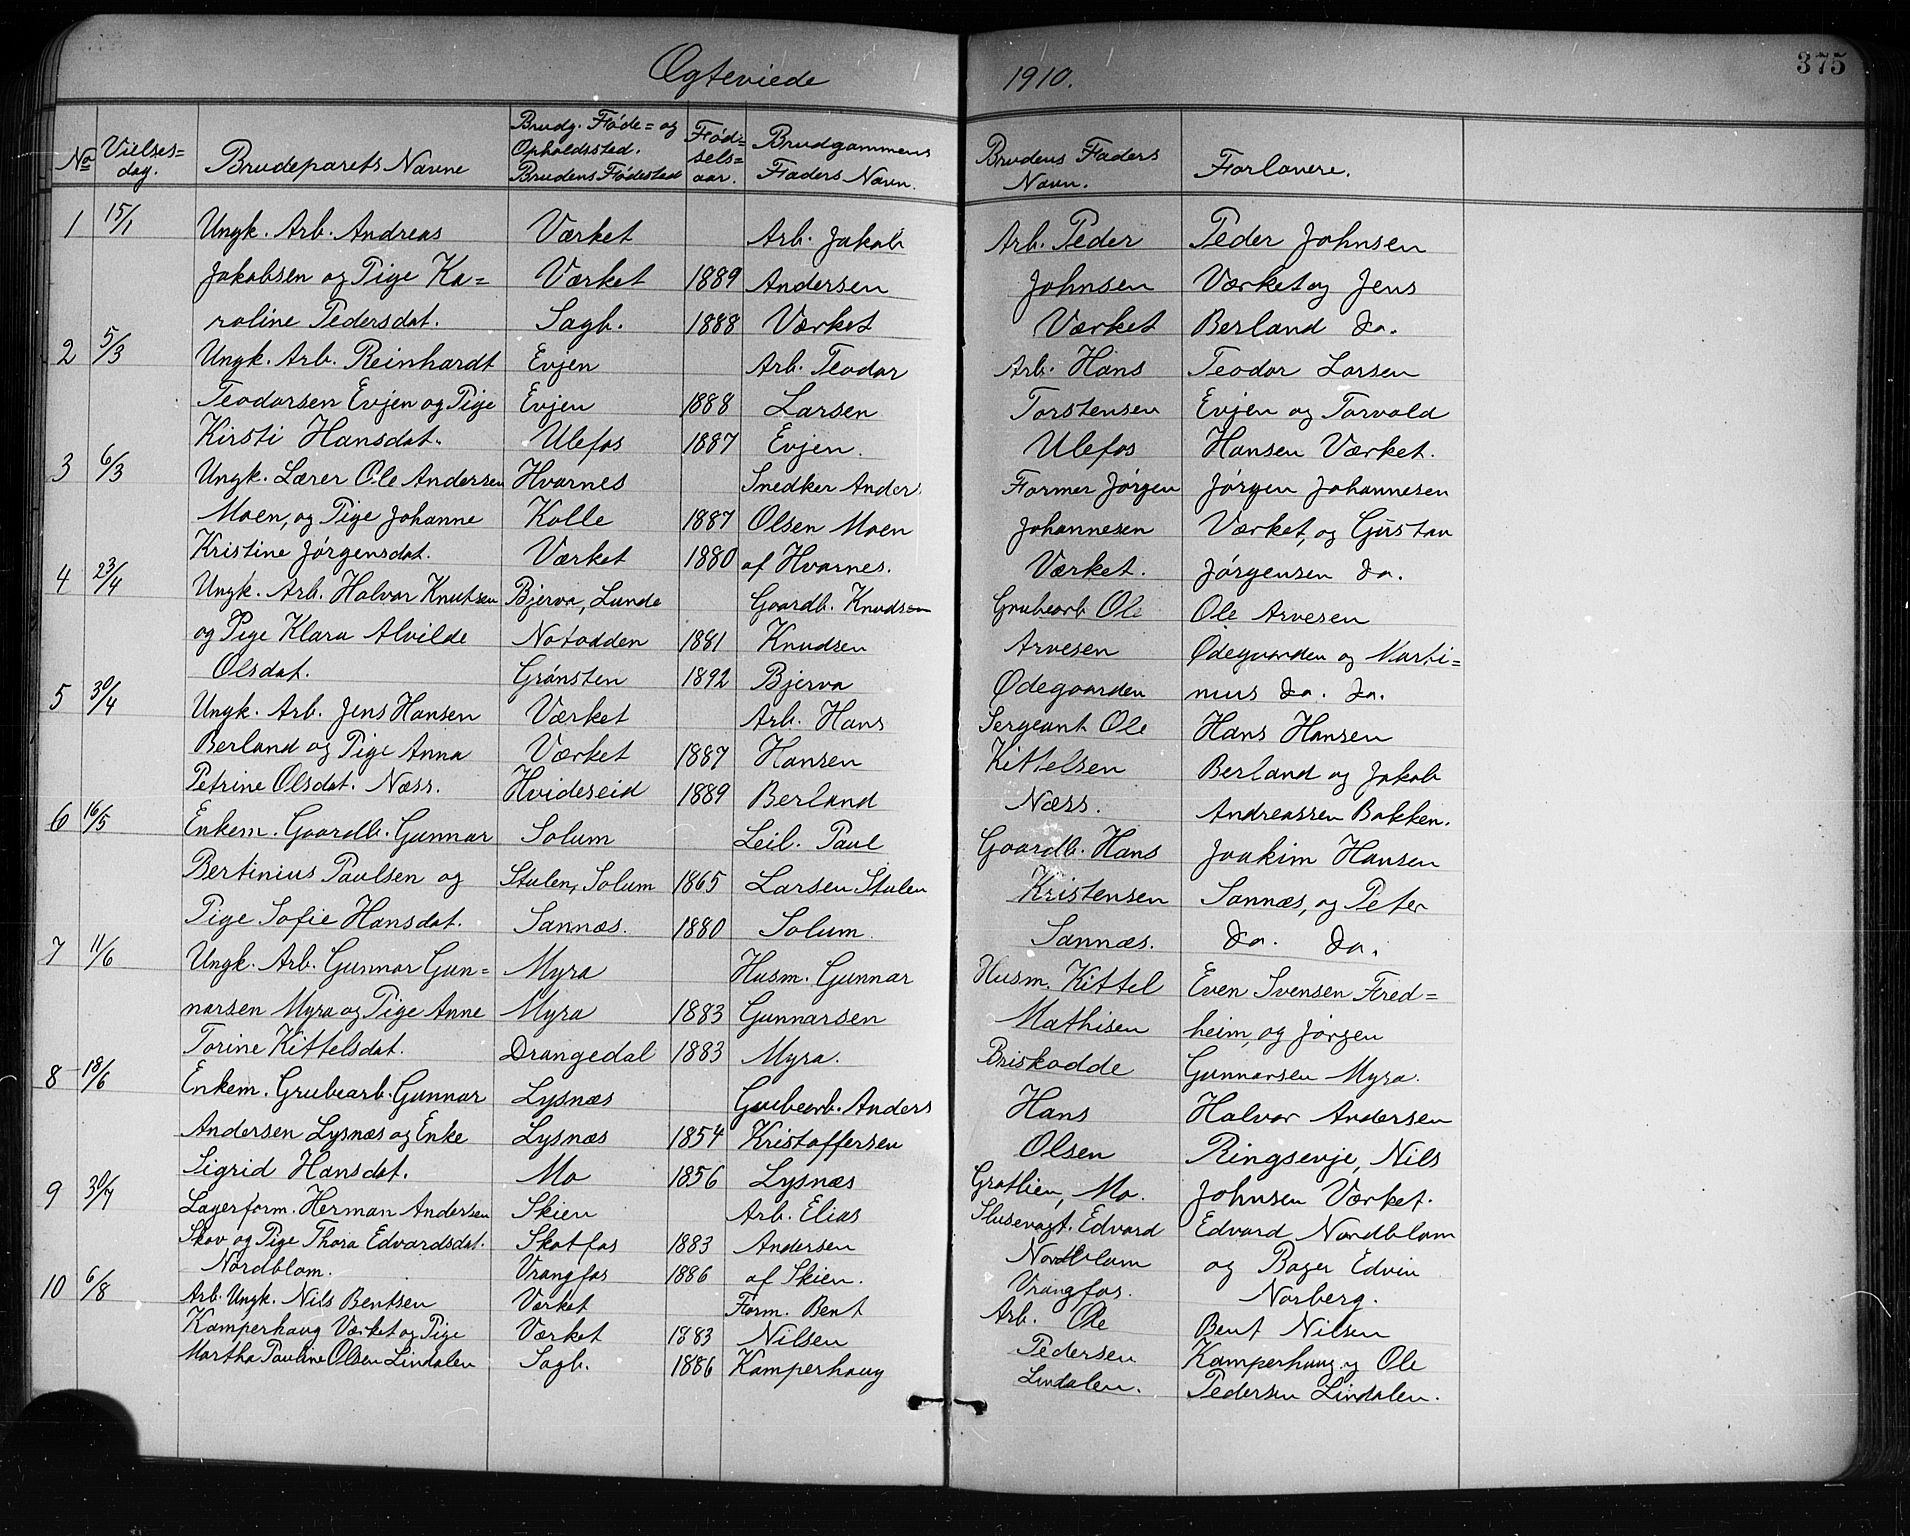 Ægteviede 1910. 375
No Vielses= dag. Brudeparets Navne Brudg. Føde= og Opholdssted. Brudens Fødested Fød= sels= aar. Brudgommens Faders Navn. Brudens Faders Navn. Forlovere.
1 15/1 Ungk. Arb. Andreas Værket Arb. Jakob Arb. Peder Peder Johnsen
Jakobsen og Pige Ka= Værket 1889 Andersen Johnsen Værket og Jens
roline Pedersdat. Sagb. 1888 Værket Værket Berland do.
2 5/3 Ungk. Arb. Reinhardt Evjen Arb. Teodor Arb. Hans Teodor Larsen
Teodorsen Evjen og Pige Evjen 1888 Larsen Torstensen Evjen og Torvald
Kirsti Hansdat. Ulefos 1887 Evjen. Ulefos Hansen Værket.
3 6/3 Ungk. Lærer Ole Andersen Hvarnes Snedker Anders Former Jørgen Jørgen Johannesen
Moen, og Pige Johanne Kolle 1887 Olsen Moen Johannesen Værket, og Gustav
Kristine Jørgensdat. Værket 1880 af Hvarnes. Værket. Jørgensen do.
4 23/4 Ungk. Arb. Halvor Knutsen Bjerva, Lunde Gaardb. Knudsen Grubearb. Ole Ole Arvesen
og Pige Klara Alvilde Notodden 1881 Knudsen Arvesen Ødegaarden og Marti=
Olsdat. Grønsten 1892 Bjerva Ødegaarden nus do. do.
5 30/4 Ungk. Arb. Jens Hansen Værket Arb. Hans Sergeant Ole Hans Hansen
Berland og Pige Anna Værket 1887 Hansen Kittelsen Berland og Jakob
Petrine Olsdat. Næss. Hvideseid 1889 Berland Næss. Andreassen Bakken.
6 16/5 Enkem. Gaardb. Gunnar Solum Leil. Paul Gaardb. Hans Joakim Hansen
Bertinius Paulsen og Stulen, Solum 1865 Larsen Stulen Kristensen Sannæs, og Peter
Pige Sofie Hansdat. Sannæs. 1880 Solum. Sannæs. do. do.
7 11/6 Ungk. Arb. Gunnar Gun= Myra Husm. Gunnar Husm. Kittel Even Svensen Fred=
narsen Myra og Pige Anne Myra 1883 Gunnarsen Mathisen heim, og Jørgen
Torine Kittelsdat. Drangedal 1883 Myra. Briskodde Gunnarsen Myra.
8 18/6 Enkem. Grubearb. Gunnar Lysnæs Grubearb. Anders Hans Halvor Andersen
Andersen Lysnæs og Enke Lysnæs 1854 Kristoffersen Olsen Ringsevje, Nils
Sigrid Hansdat. Mo 1856 Lysnæs Grotlien, Mo. Johnsen Værket.
9 30/7 Lagerform. Herman Andersen Skien Arb. Elias Slusevagt. Edvard Edvard Nordblom
Skov og Pige Thora Edvardsdat. Skotfos 1883 Andersen Nordblom og Bager Edvin
Nordblom. Vrangfos 1886 af Skien. Vrangfos. Norberg.
10 6/8 Arb. Ungk. Nils Bentsen Værket Form. Bent Arb. Ole Bent Nilsen
Kamperhaug Værket og Pige Værket 1883 Nilsen Pedersen Kamperhaug og Ole
Martha Pauline Olsen Lindalen Sagb. 1886 Kamperhaug Lindalen. Pedersen Lindalen.